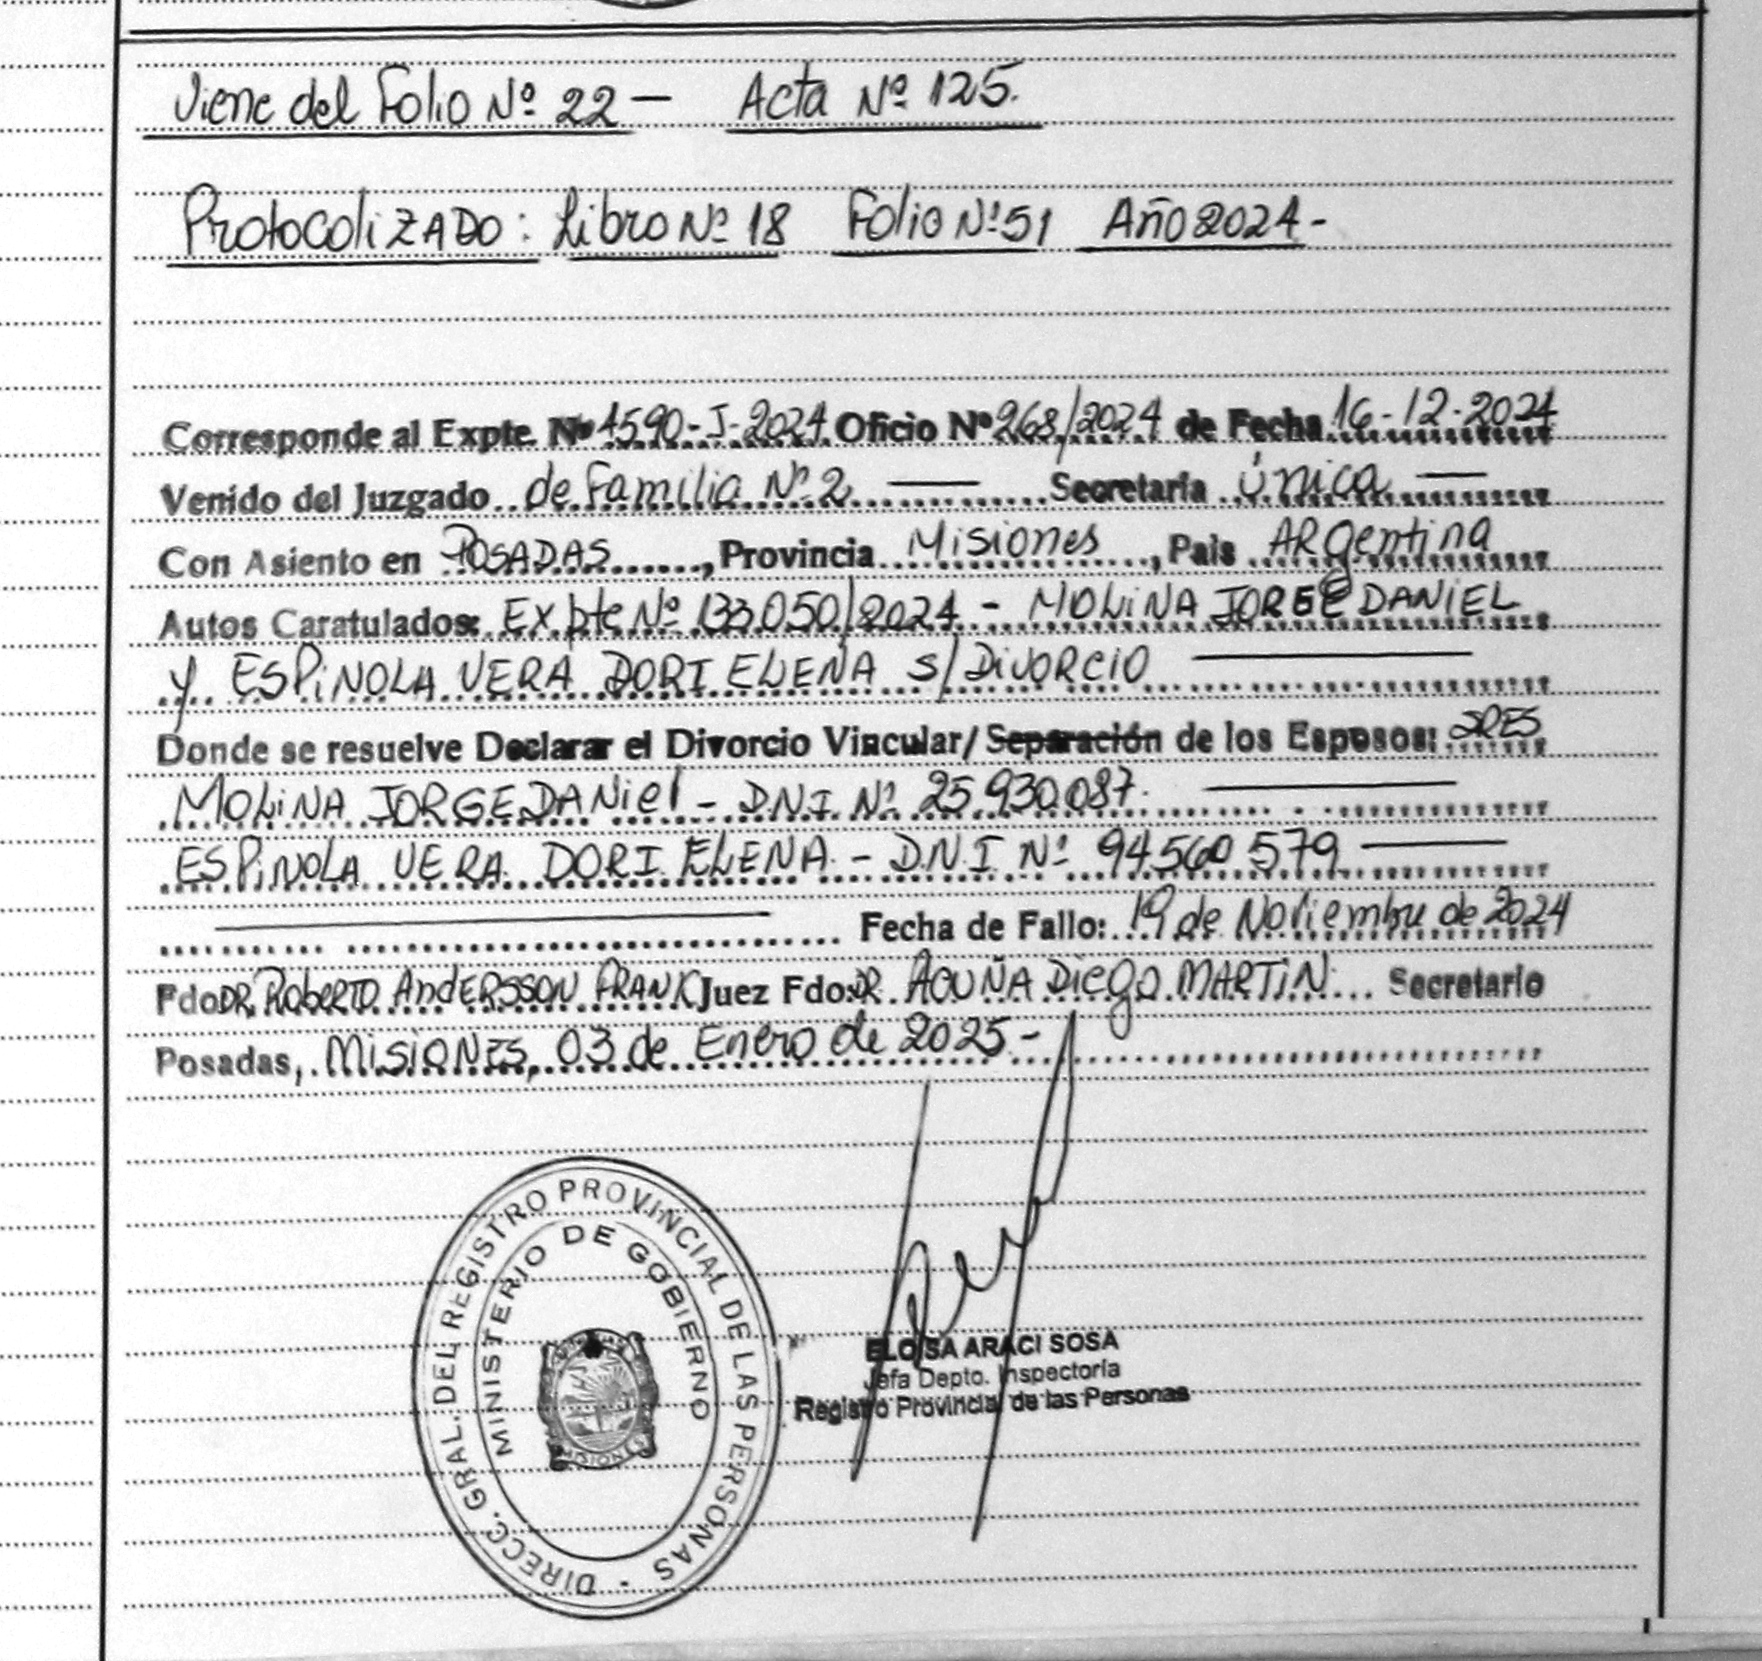 Viene del Folio Nº 22 — Acta Nº 125.
Protocolizado: Libro Nº 18 Folio Nº 51 Año 2024-
Corresponde al Expte. Nº 4590-I-2024 Oficio Nº 268/2024 de Fecha 16-12-2024
Venido del Juzgado de Familia Nº 2 — Secretaría Única —
Con Asiento en POSADAS, Provincia Misiones, Pais ARgentina
Autos Caratulados: Expte Nº 133.050/2024 - MOLINA JORGE DANIEL
y ESPINOLA VERA DORI ELENA s/ DIVORCIO —
Donde se resuelve Declarar el Divorcio Vincular/ Separación de los Esposos: SRES
MOLINA JORGE DANiel - D.N.I Nº 25.930.087. —
ESPINOLA VERA DORI ELENA - D.N.I Nº 94.560.579 —
— Fecha de Fallo: 19 de Noviembre de 2024
Fdo DR. Roberto Andersson FRANK Juez Fdo: DR. ACUÑA Diego MARTIN Secretario
Posadas, MISIONES, 03 de Enero de 2025.-
DIRECC. GRAL. DEL REGISTRO PROVINCIAL DE LAS PERSONAS -
MINISTERIO DE GOBIERNO
MISIONES
ELOISA ARACI SOSA
Jefa Depto. Inspectoría
Registro Provincial de las Personas